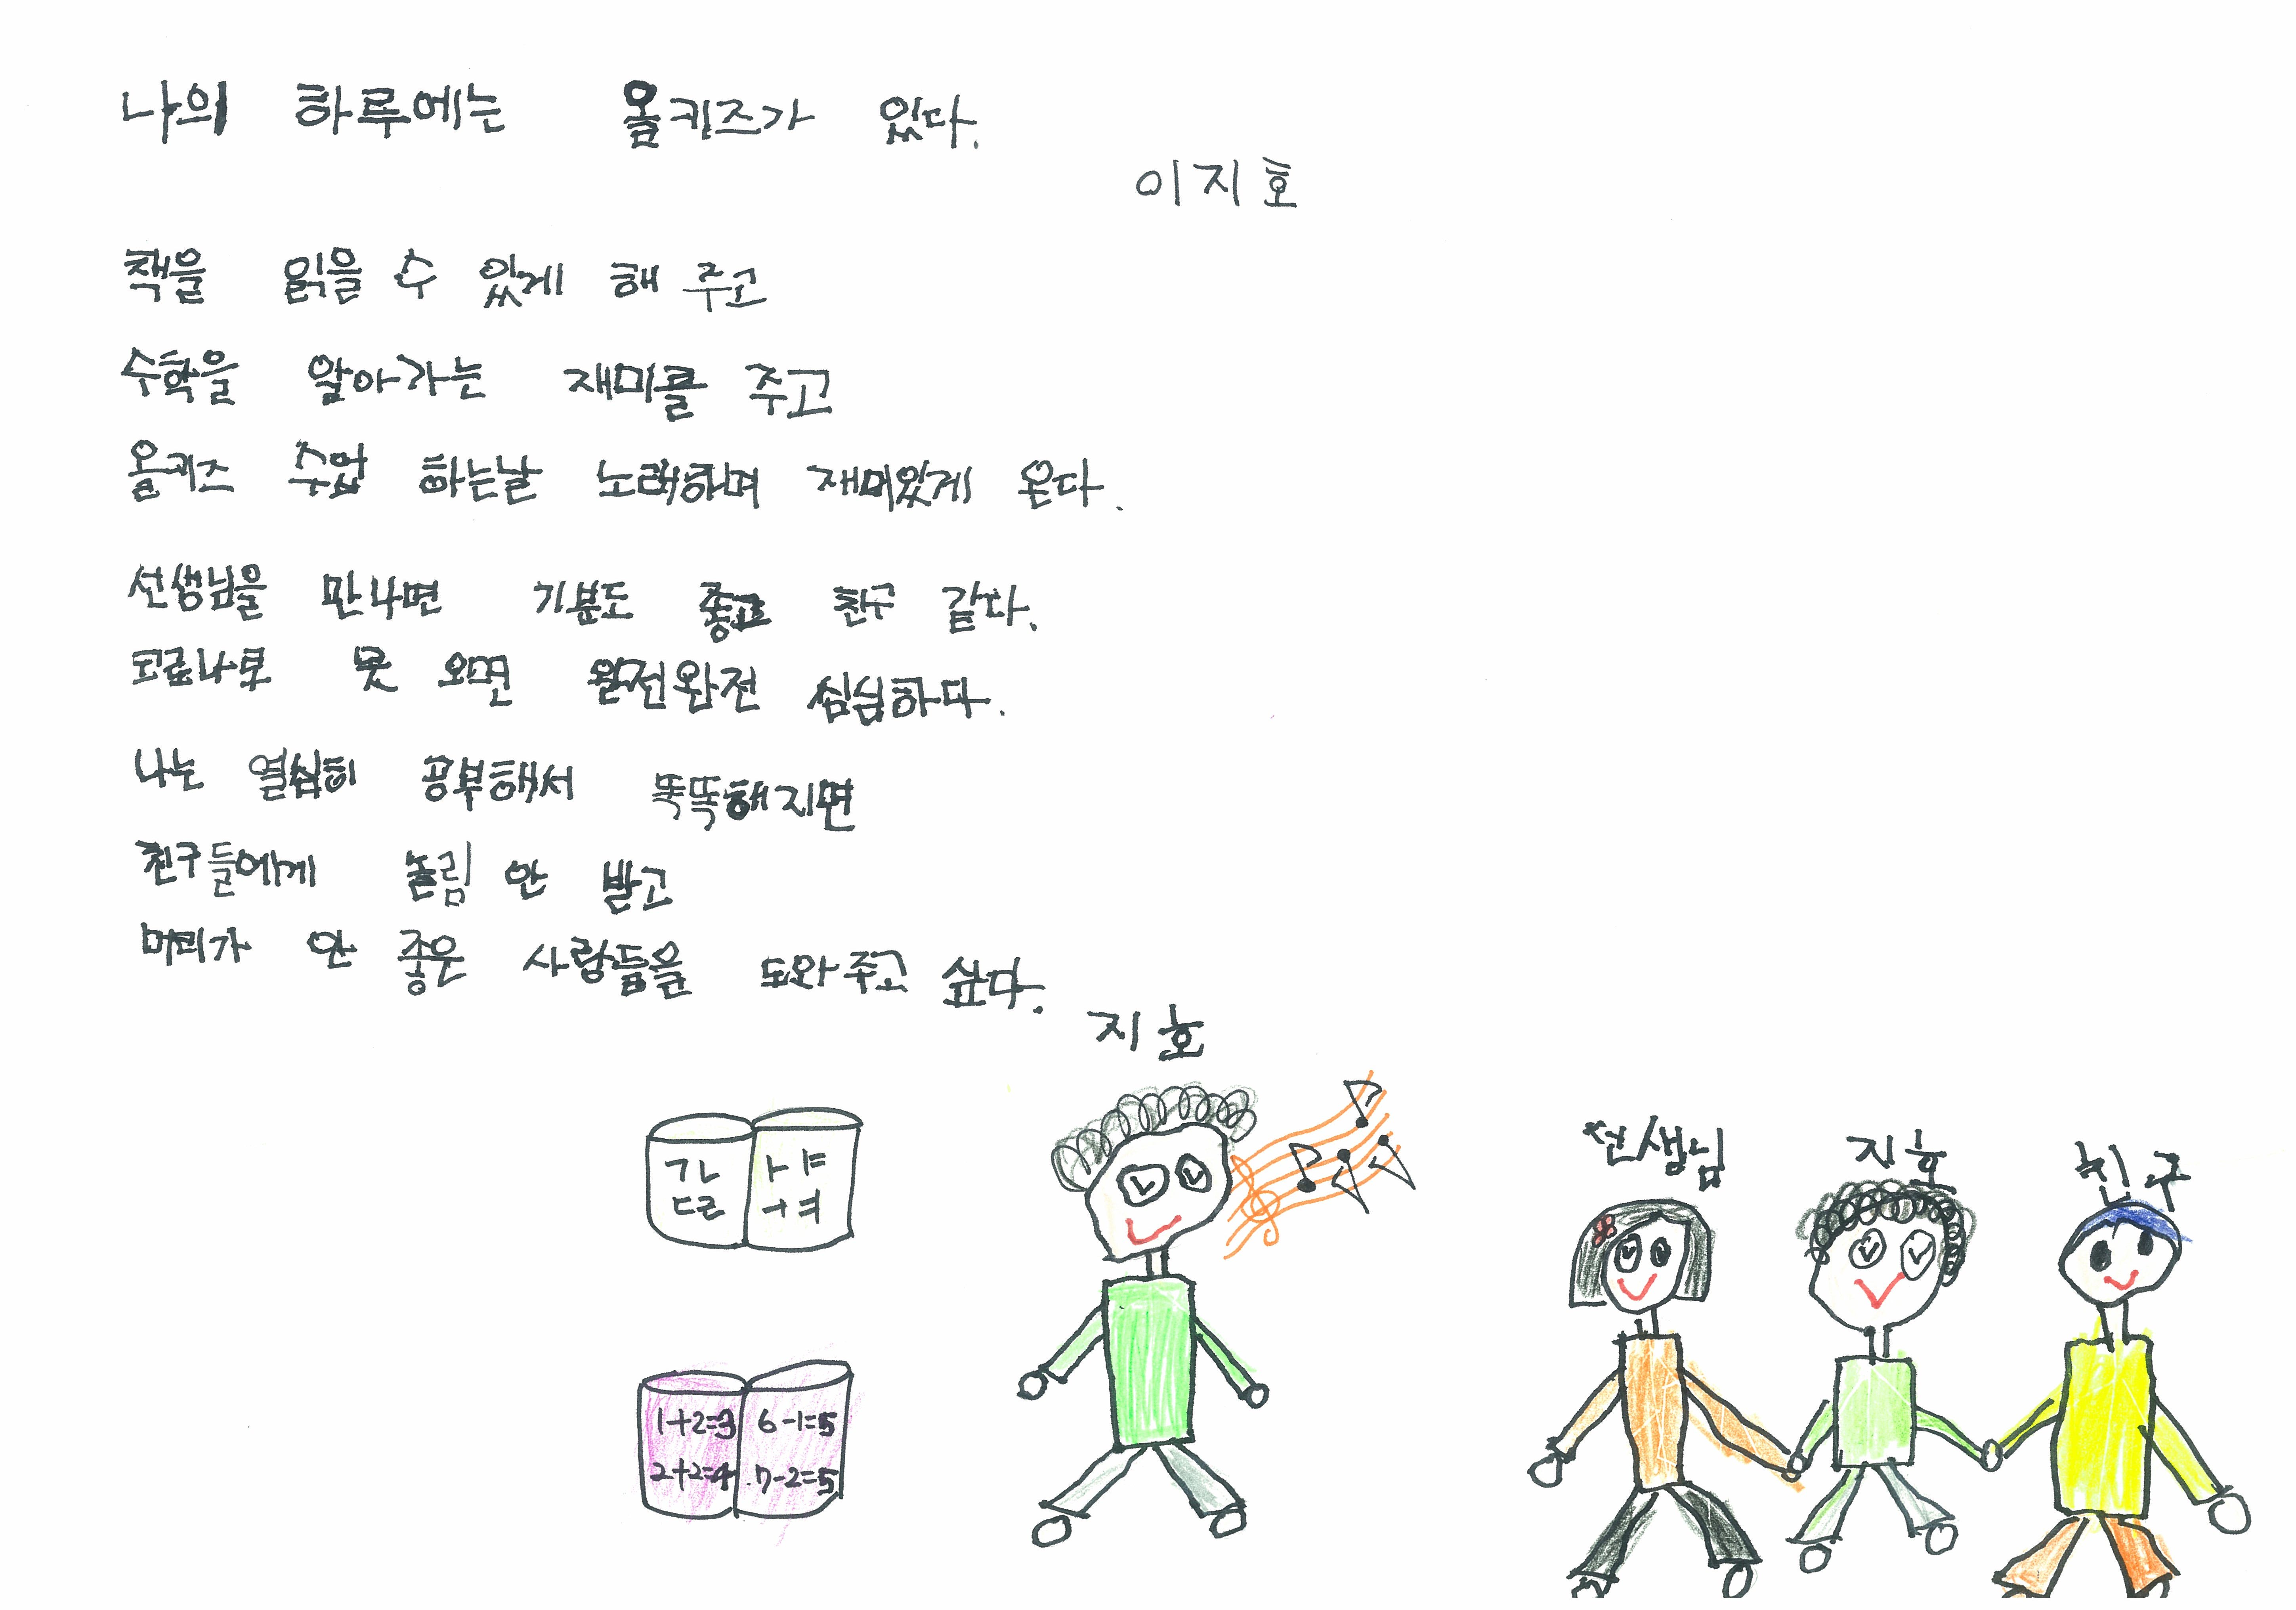 나의 하루에는 올키즈가 있다.
이지호
책을 읽을 수 있게 해 주고
수학을 알아가는 재미를 주고
올키즈 수업 하는날 노래하며 재미있게 온다.
선생님을 만나면 기분도 좋고 친구 같다.
코로나로 못 오면 완전완전 심심하다.
나는 열심히 공부해서 똑똑해지면
친구들에게 놀림 안 받고
머리가 안 좋은 사람들을 도와주고 싶다.
지호
ㄱㄴ ㅏㅑ
ㄷㄹ ㅓㅕ
1+2=3 6-1=5
2+2=4 7-2=5
선생님 지호 친구